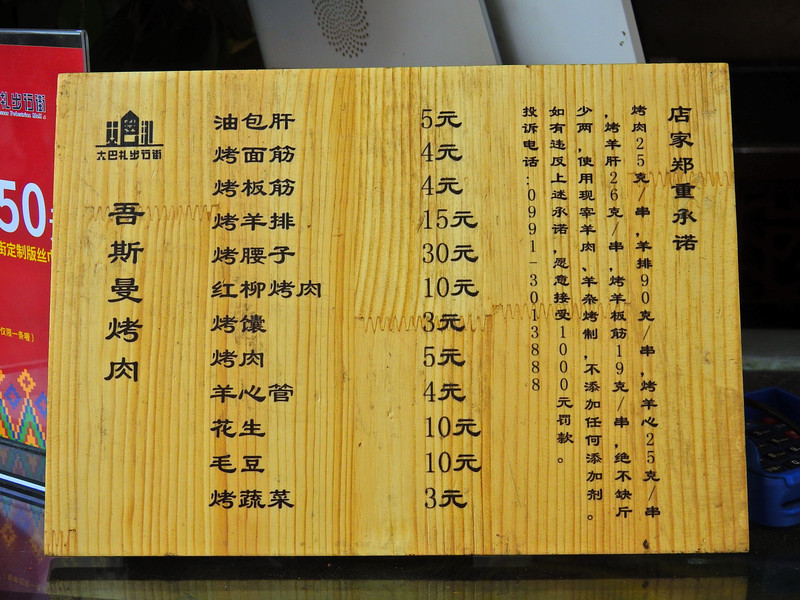 大巴扎步行街
吾斯曼烤肉
油包肝 5元
烤面筋 4元
烤板筋 4元
烤羊排 15元
烤腰子 30元
红柳烤肉 10元
烤馕 3元
烤肉 5元
羊心管 4元
花生 10元
毛豆 10元
烤蔬菜 3元
店家郑重承诺
烤肉25克/串,羊排90克/串,烤羊心25克/串
,烤羊肝26克/串,烤羊板筋19克/串,绝不缺斤
少两,使用现宰羊肉、羊杂烤制,不添加任何添加剂。
如有违反上述承诺,愿意接受1000元罚款。
投诉电话:0991-3013888
札步行街
50
街定制版丝巾
仅限一条喔)